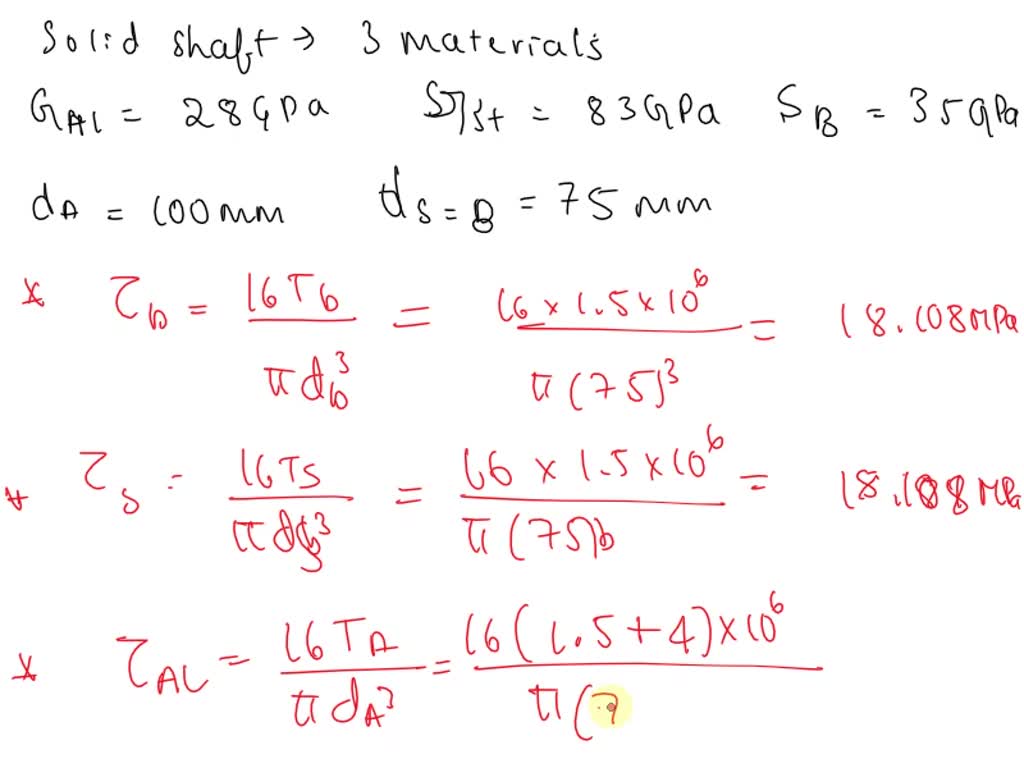 Solid shaft → 3 materials
G_Al = 28GPa S/St = 83GPa S_B = 35GPa
d_A = 100mm d_S=B = 75mm
* τ_b = 16T_b / πd_b³ = 16 × 1.5 × 10⁶ / π(75)³ = 18.108MPa
* τ_s = 16T_S / πd_s³ = 16 × 1.5 × 10⁶ / π(75)³ = 18.108MPa
* τ_AL = 16T_A / πd_A³ = 16(1.5+4)×10⁶ / π(7